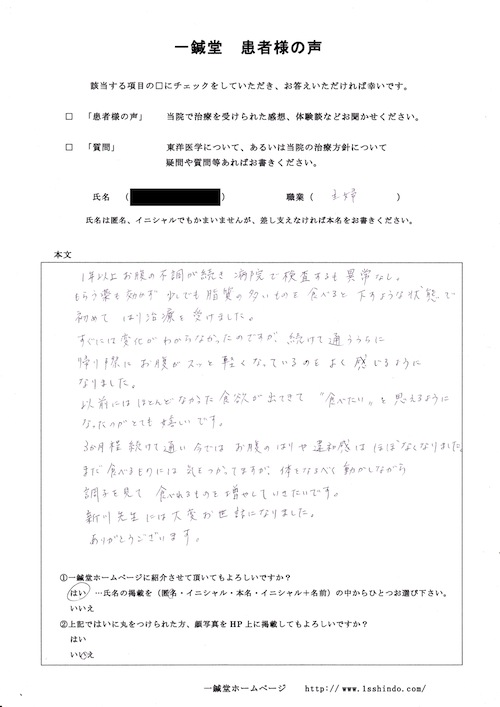 一鍼堂　患者様の声
該当する項目の□にチェックをしていただき、お答えいただければ幸いです。
□　「患者様の声」　当院で治療を受けられた感想、体験談などお聞かせください。
□　「質問」　東洋医学について、あるいは当院の治療方針について
疑問や質問等あればお書きください。
氏名　（　　　）　職業（　主婦　）
氏名は匿名、イニシャルでもかまいませんが、差し支えなければ本名をお書きください。
本文
1年以上お腹の不調が続き 病院で検査するも異常なし。
もらう薬も効かず 少しでも脂質の多いものを食べると下すような状態で
初めて はり治療を受けました。
すぐには変化がわからなかったのですが、続けて通ううちに
帰り際に お腹がスッと軽くなっているのをよく感じるように
なりました。
以前にはほとんどなかった食欲が出てきて “食べたい„と思えるように
なったのがとても嬉しいです。
3か月程続けて通い今では お腹のはりや違和感はほぼなくなりました。
まだ食べるものには気をつけてますが、体もなるべく動かしながら
調子を見て 食べれるものを増やしていきたいです。
新川先生には大変お世話になりました。
ありがとうございます。
①一鍼堂ホームページに紹介させて頂いてもよろしいですか？
はい　…氏名の掲載を（匿名・イニシャル・本名・イニシャル＋名前）の中からひとつお選び下さい。
いいえ
②上記ではいに丸をつけられた方、顔写真をHP上に掲載してもよろしいですか？
はい
いいえ
一鍼堂ホームページ　http://www.1sshindo.com/